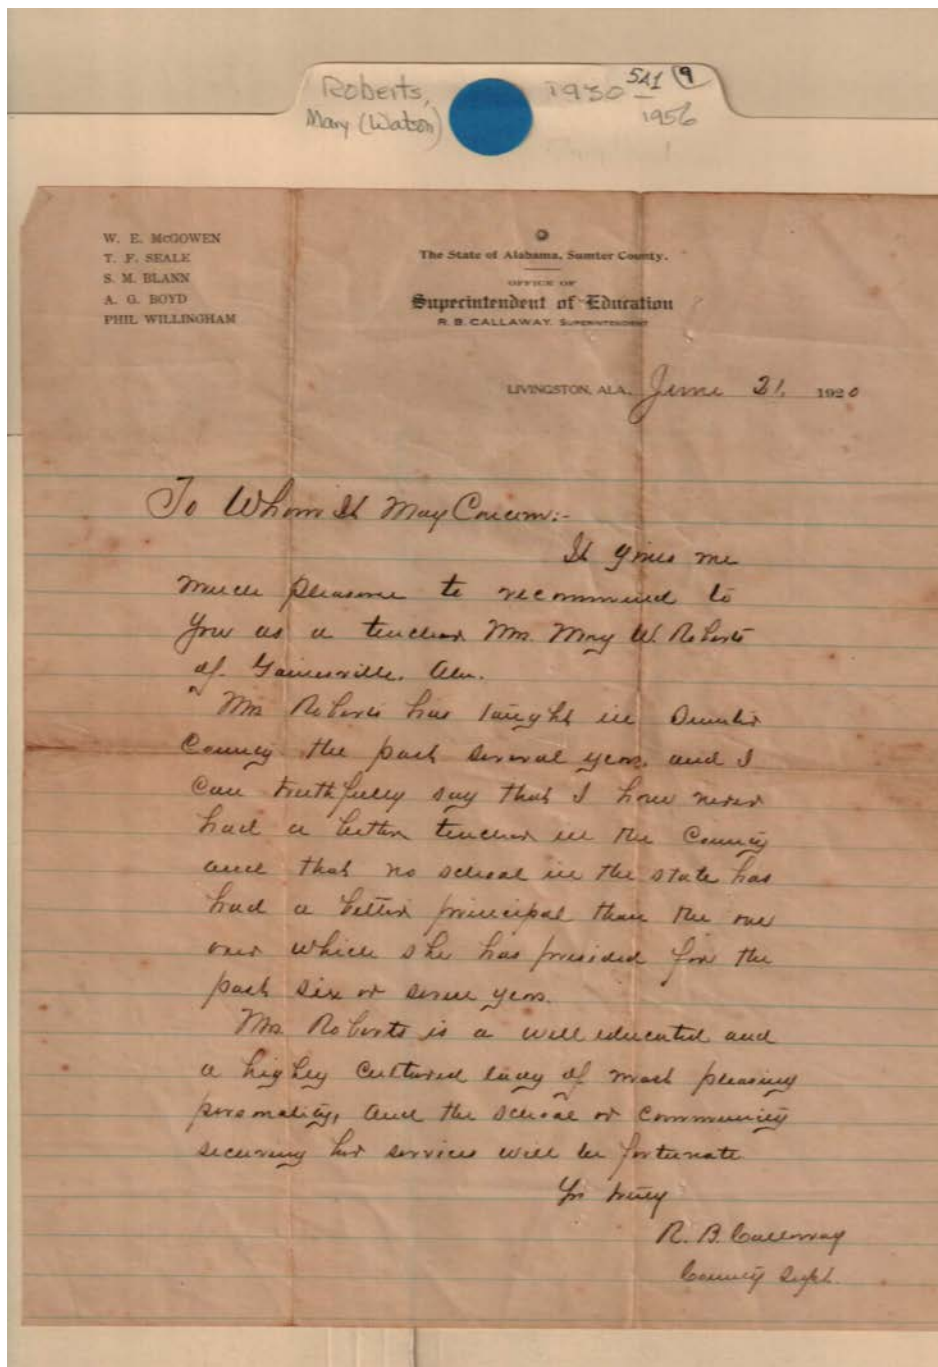 Roberts,
Mary (Watson)
1930 -
1956
5A1 9
W. E. McGOWEN
T. F. SEALE
S. M. BLANN
A. G. BOYD
PHIL WILLINGHAM
The State of Alabama, Sumter County.
OFFICE OF
Superintendent of Education
R. B. CALLAWAY, SUPERINTENDENT
LIVINGSTON, ALA. June 21, 1920
To Whom It May Concern:-
It gives me
much pleasure to recommend to
you as a teacher Mrs. Mary W. Roberts
of Gainesville, Ala.
Mrs Roberts has taught in Sumter
County the past several years, and I
can truthfully say that I have never
had a better teacher in the County
and that no school in the state has
had a better principal than the one
over which she has presided for the
past six or seven years.
Mrs. Roberts is a well educated and
a highly cultured lady of most pleasing
personality, and the school or community
securing her services will be fortunate
Yrs truly
R. B. Callaway
County Supt.